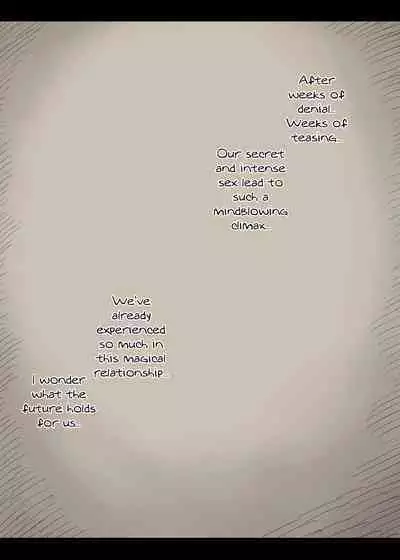 After
weeks of
denial...
Weeks of
teasing...
Our secret
and intense
sex lead to
such a
mindblowing
climax...
We've
already
experienced
so much in
this magical
relationship...
I wonder
what the
future holds
for us...